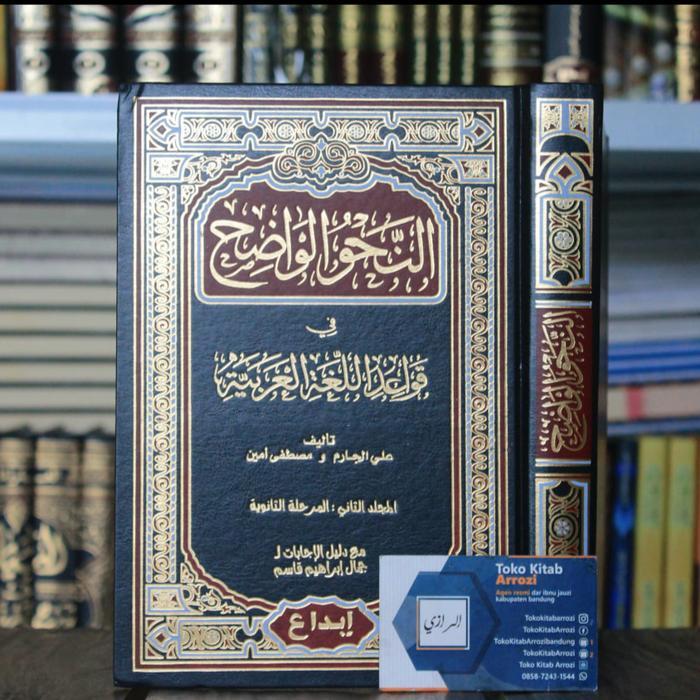 النَّحْوُ الوَاضِحُ
في
قَوَاعِدِ اللُّغَةِ العَرَبِيَّةِ
تأليف
علي الجارم و مصطفى أمين
المجلد الثاني : المرحلة الثانوية
مع دليل الإجابات لـ
جمال إبراهيم قاسم
إبداع
النَّحْوُ الوَاضِحُ
Toko Kitab
Arrozi
Agen resmi dar ibnu jauzi
kabupaten bandung
الرازي
Tokokitabarrozi
TokoKitabArrozi
TokoKitabArrozibandung 1
TokoKitabArrozi 2
Toko Kitab Arrozi
0858-7243-1544